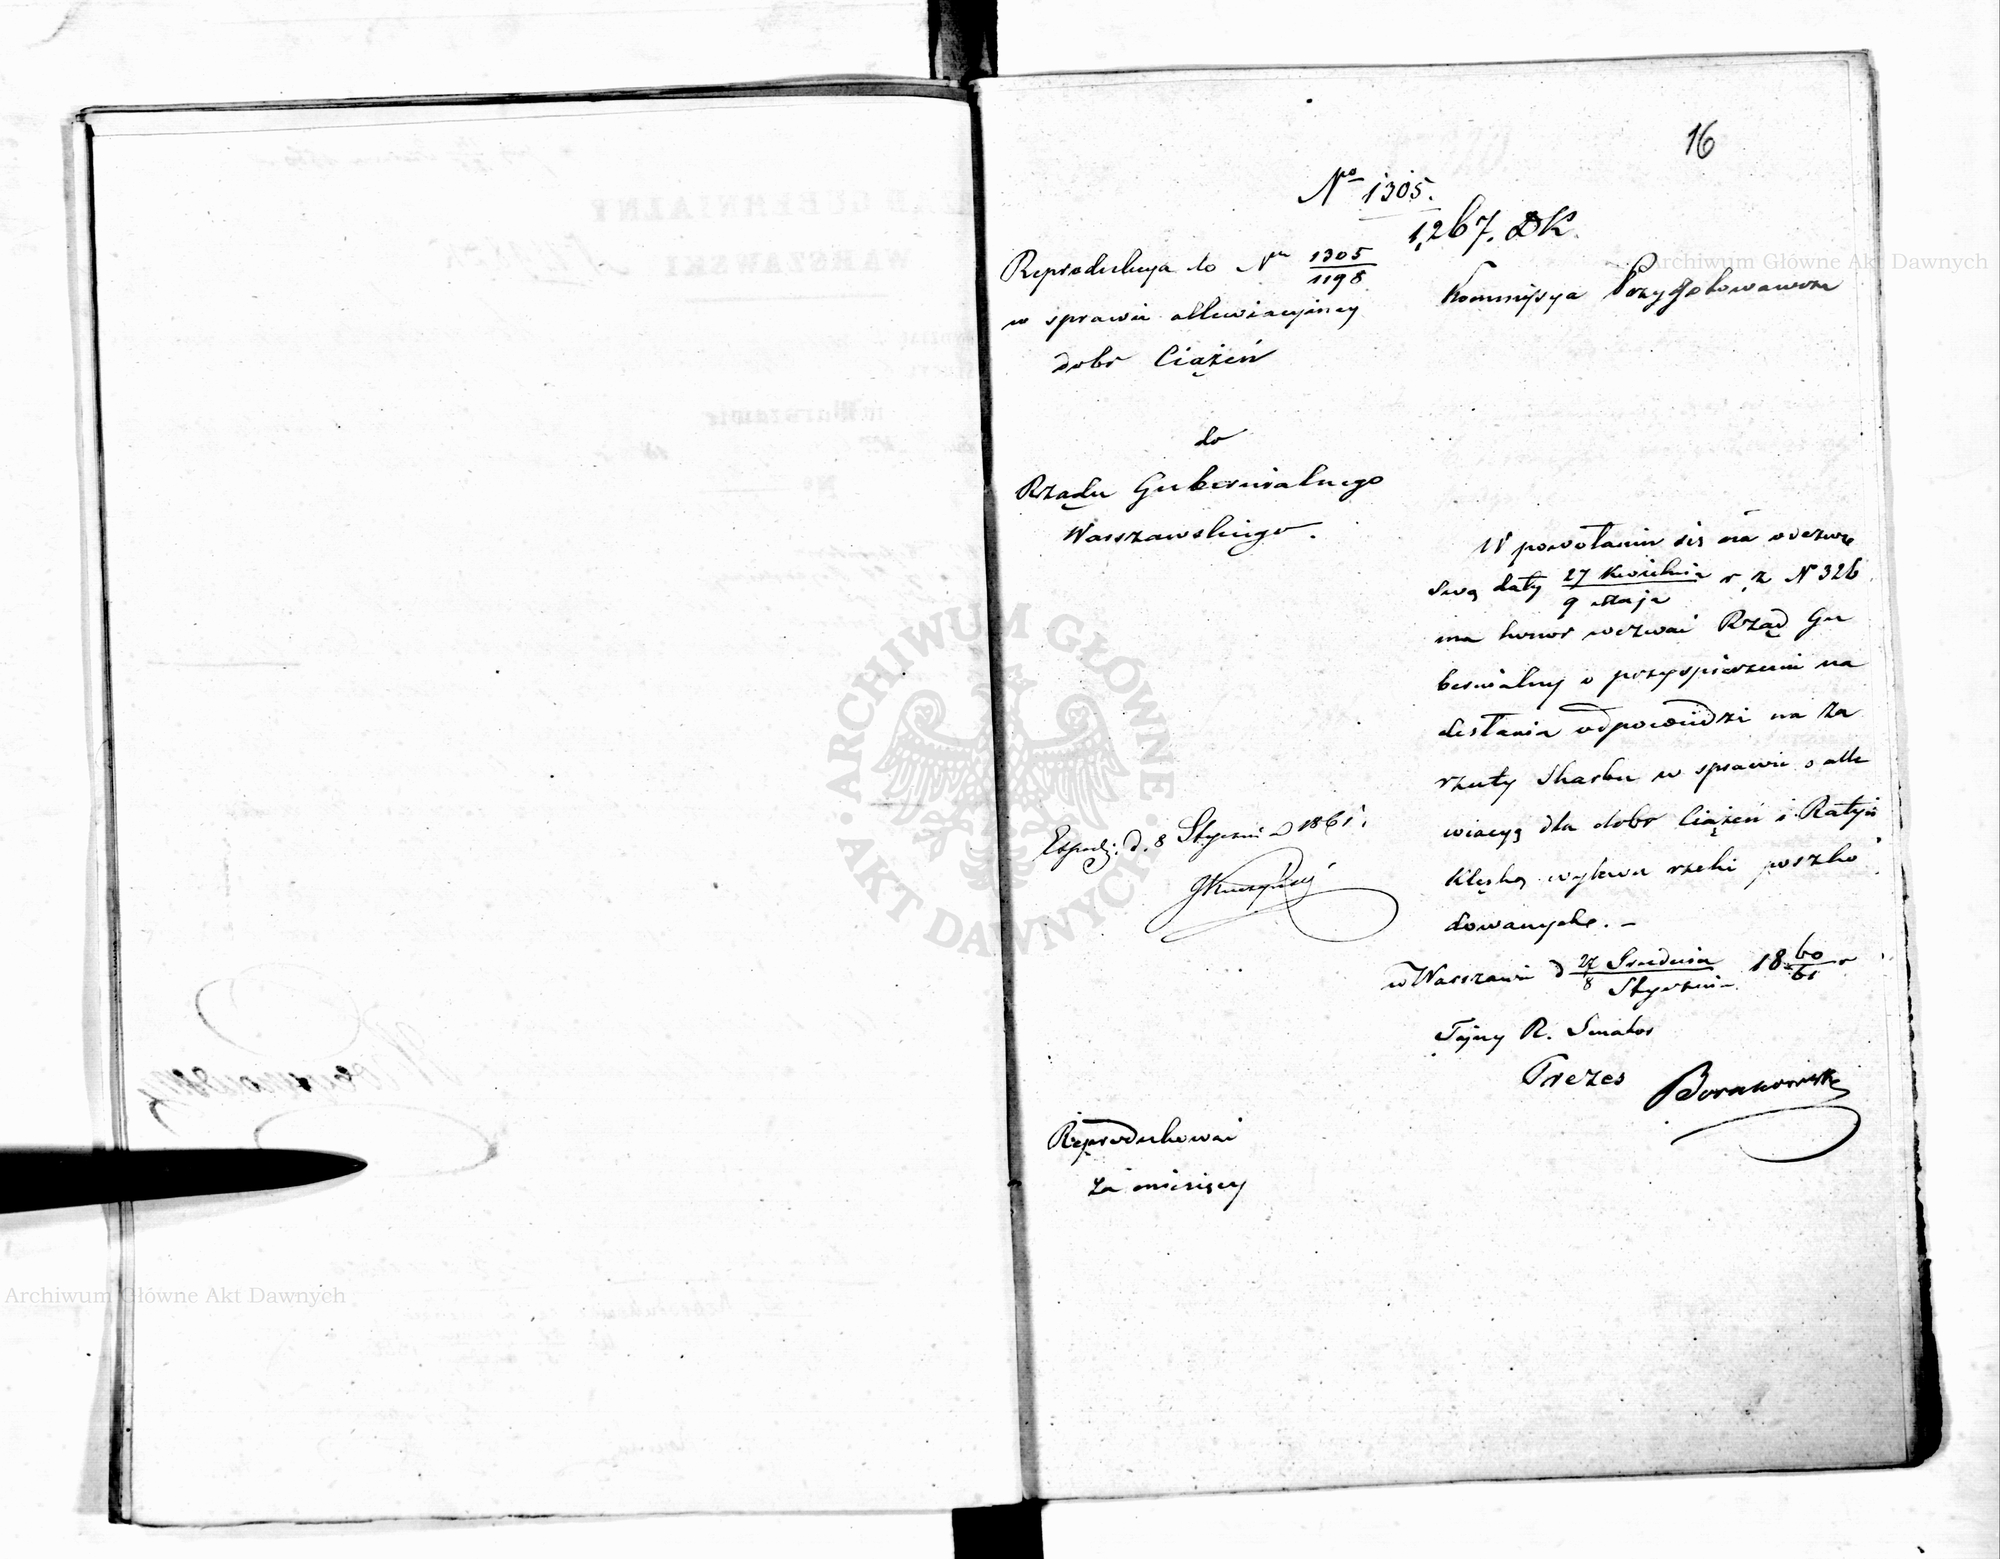 16
No 1305.
1,267. DK.
Reprodukcya do Nru 1305/1198
w sprawie allewiacyjney
dobr Ciążeń
Kommissya Przygotowawcza
do
Rządu Gubernialnego
Warszawskiego.
W powołaniu się na odezwę
swą daty 27 Kwietnia/9 Maja r. z. N 326
ma honor wezwać Rząd Gu
bernialny o przyspieszenie na
desłania odpowiedzi na za
rzuty Skarbu w sprawie o alle
wiacyę dla dobr Ciążeń i Ratyń
klęską wylewu rzeki poszko
dowanych. –
w Warszawie d 27 Grudnia/8 Stycznia 1860/61 r
Tajny R. Senator
Prezes
Expedj: d. 8 Stycznia 1861.
Reprodukować
za miesięcy
ARCHIWUM GŁÓWNE AKT DAWNYCH
Archiwum Główne Akt Dawnych
Archiwum Główne Akt Dawnych